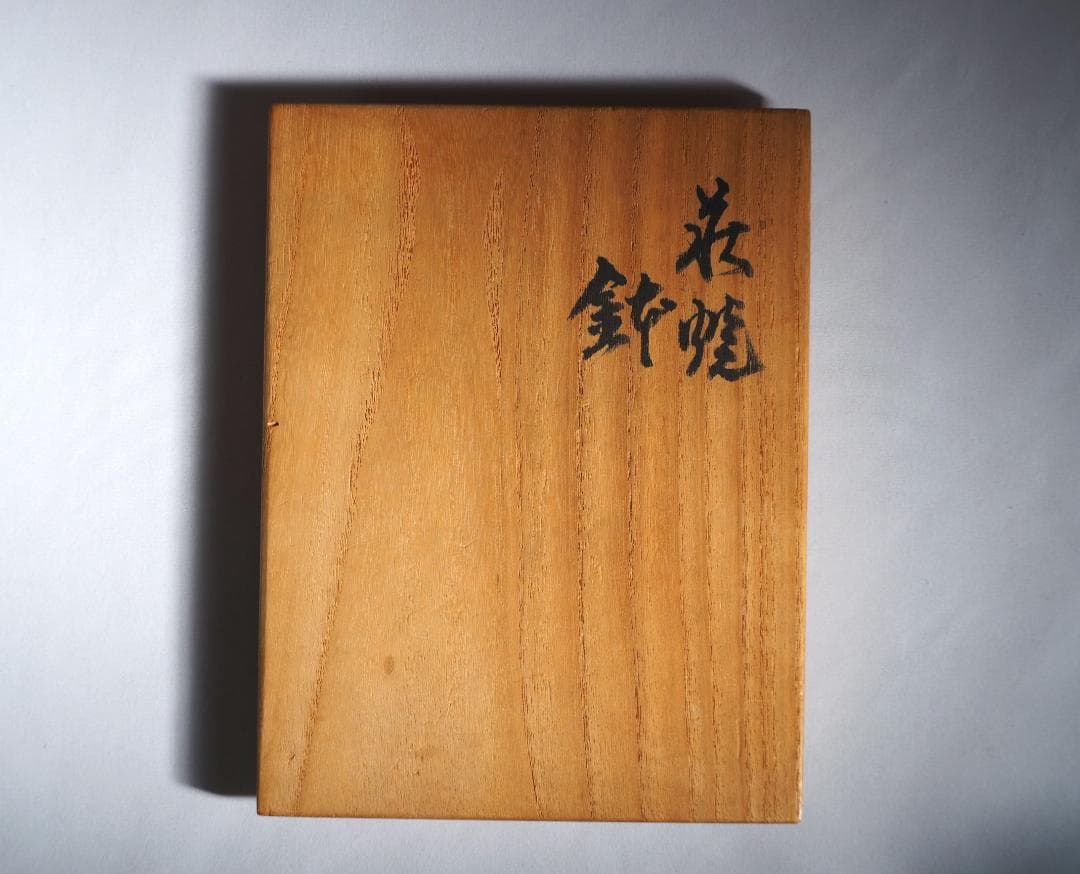 萩焼
鉢